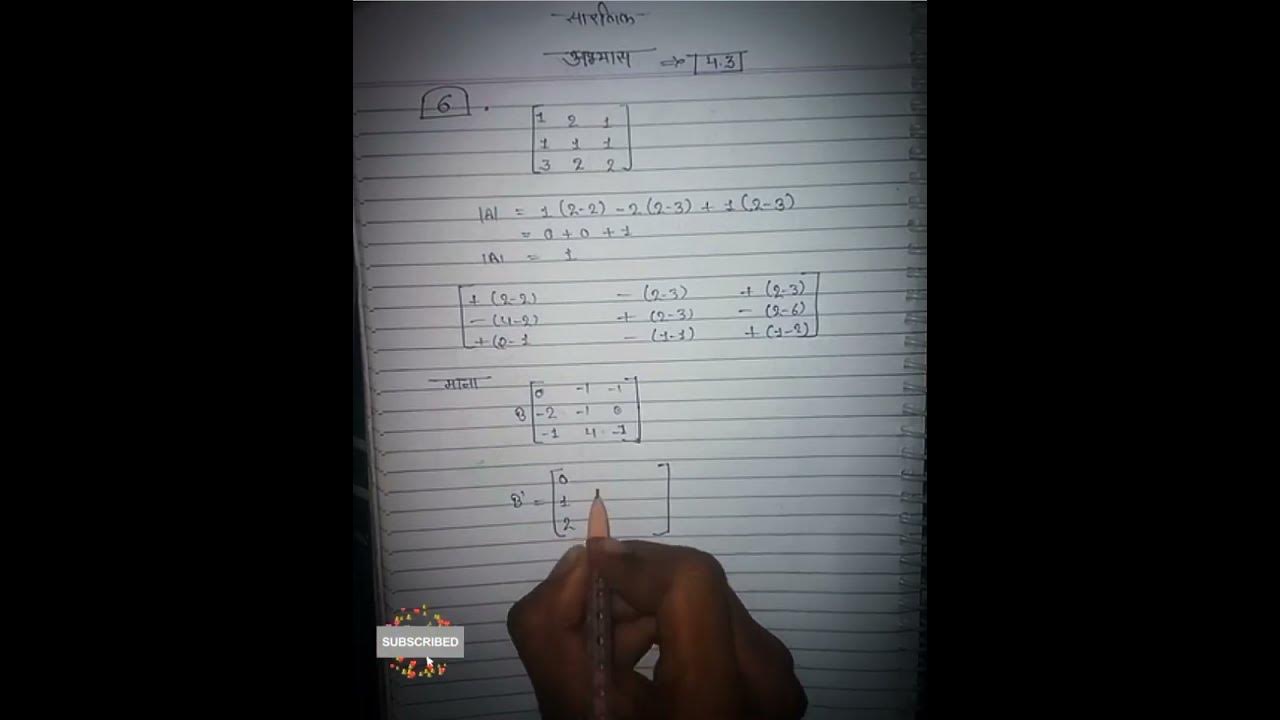 सारणिक
अभ्यास ⇒ 4.3
6 .
1 2 1
1 1 1
3 2 2
|A| = 1 (2-2) - 2 (2-3) + 1 (2-3)
= 0 + 0 + 1
|A| = 1
+ (2-2) - (2-3) + (2-3)
- (4-2) + (2-3) - (2-6)
+ (2-1 - (1-1) + (1-2)
माना
0 -1 -1
B -2 -1 0
-1 4 -1
0
B' = 1
2
SUBSCRIBED